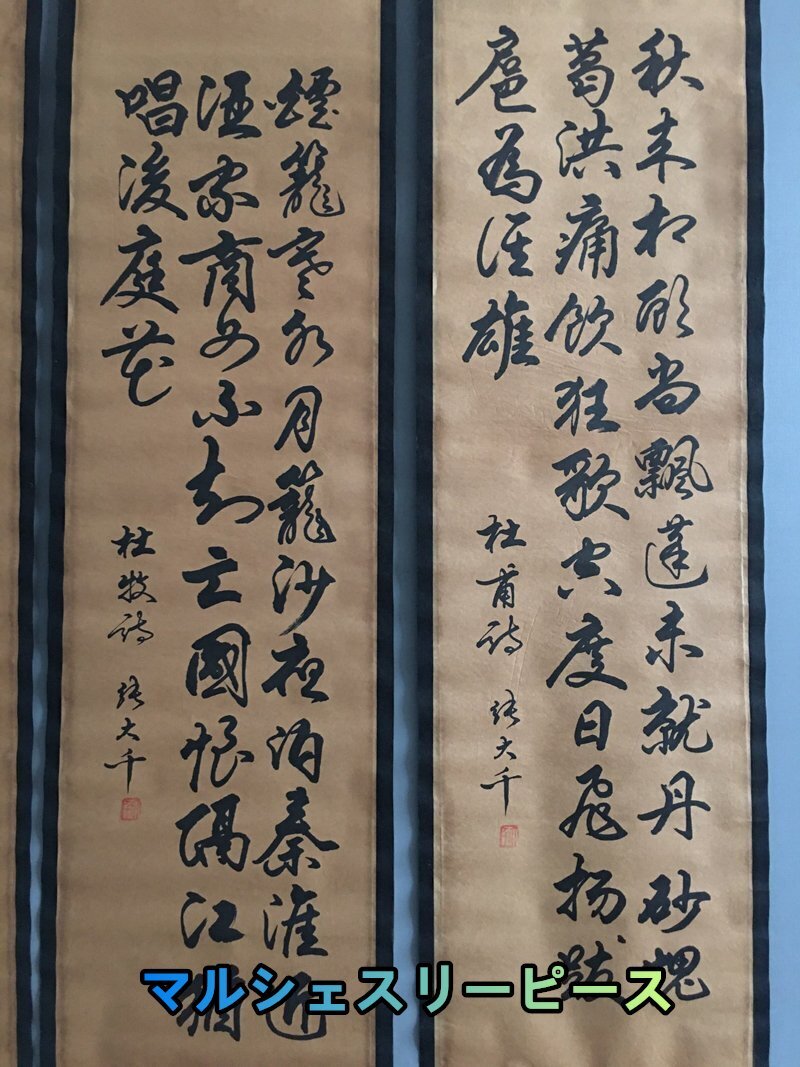 秋来相顧尚飄蓬未就丹砂愧
葛洪痛飲狂歌空度日飛揚跋
扈為誰雄
杜甫詩 張大千
煙籠寒水月籠沙夜泊秦淮近
酒家商女不知亡國恨隔江猶
唱後庭花
杜牧詩 張大千
マルシェスリーピース